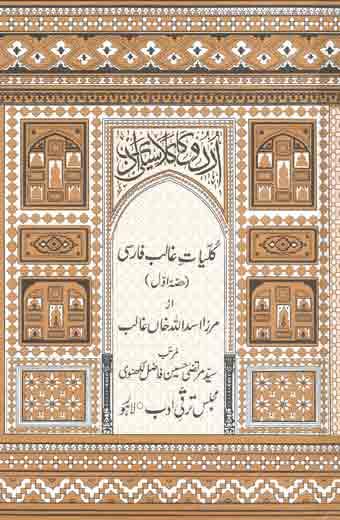 اردو کا کلاسیکی ادب
کلیّات غالب فارسی
(حصہ اول)
از
مرزا اسد اللہ خاں غالب
مرتبہ
سیّد مرتضیٰ حسین فاضل لکھنوی
مجلس ترقی ادب ○ لاہور